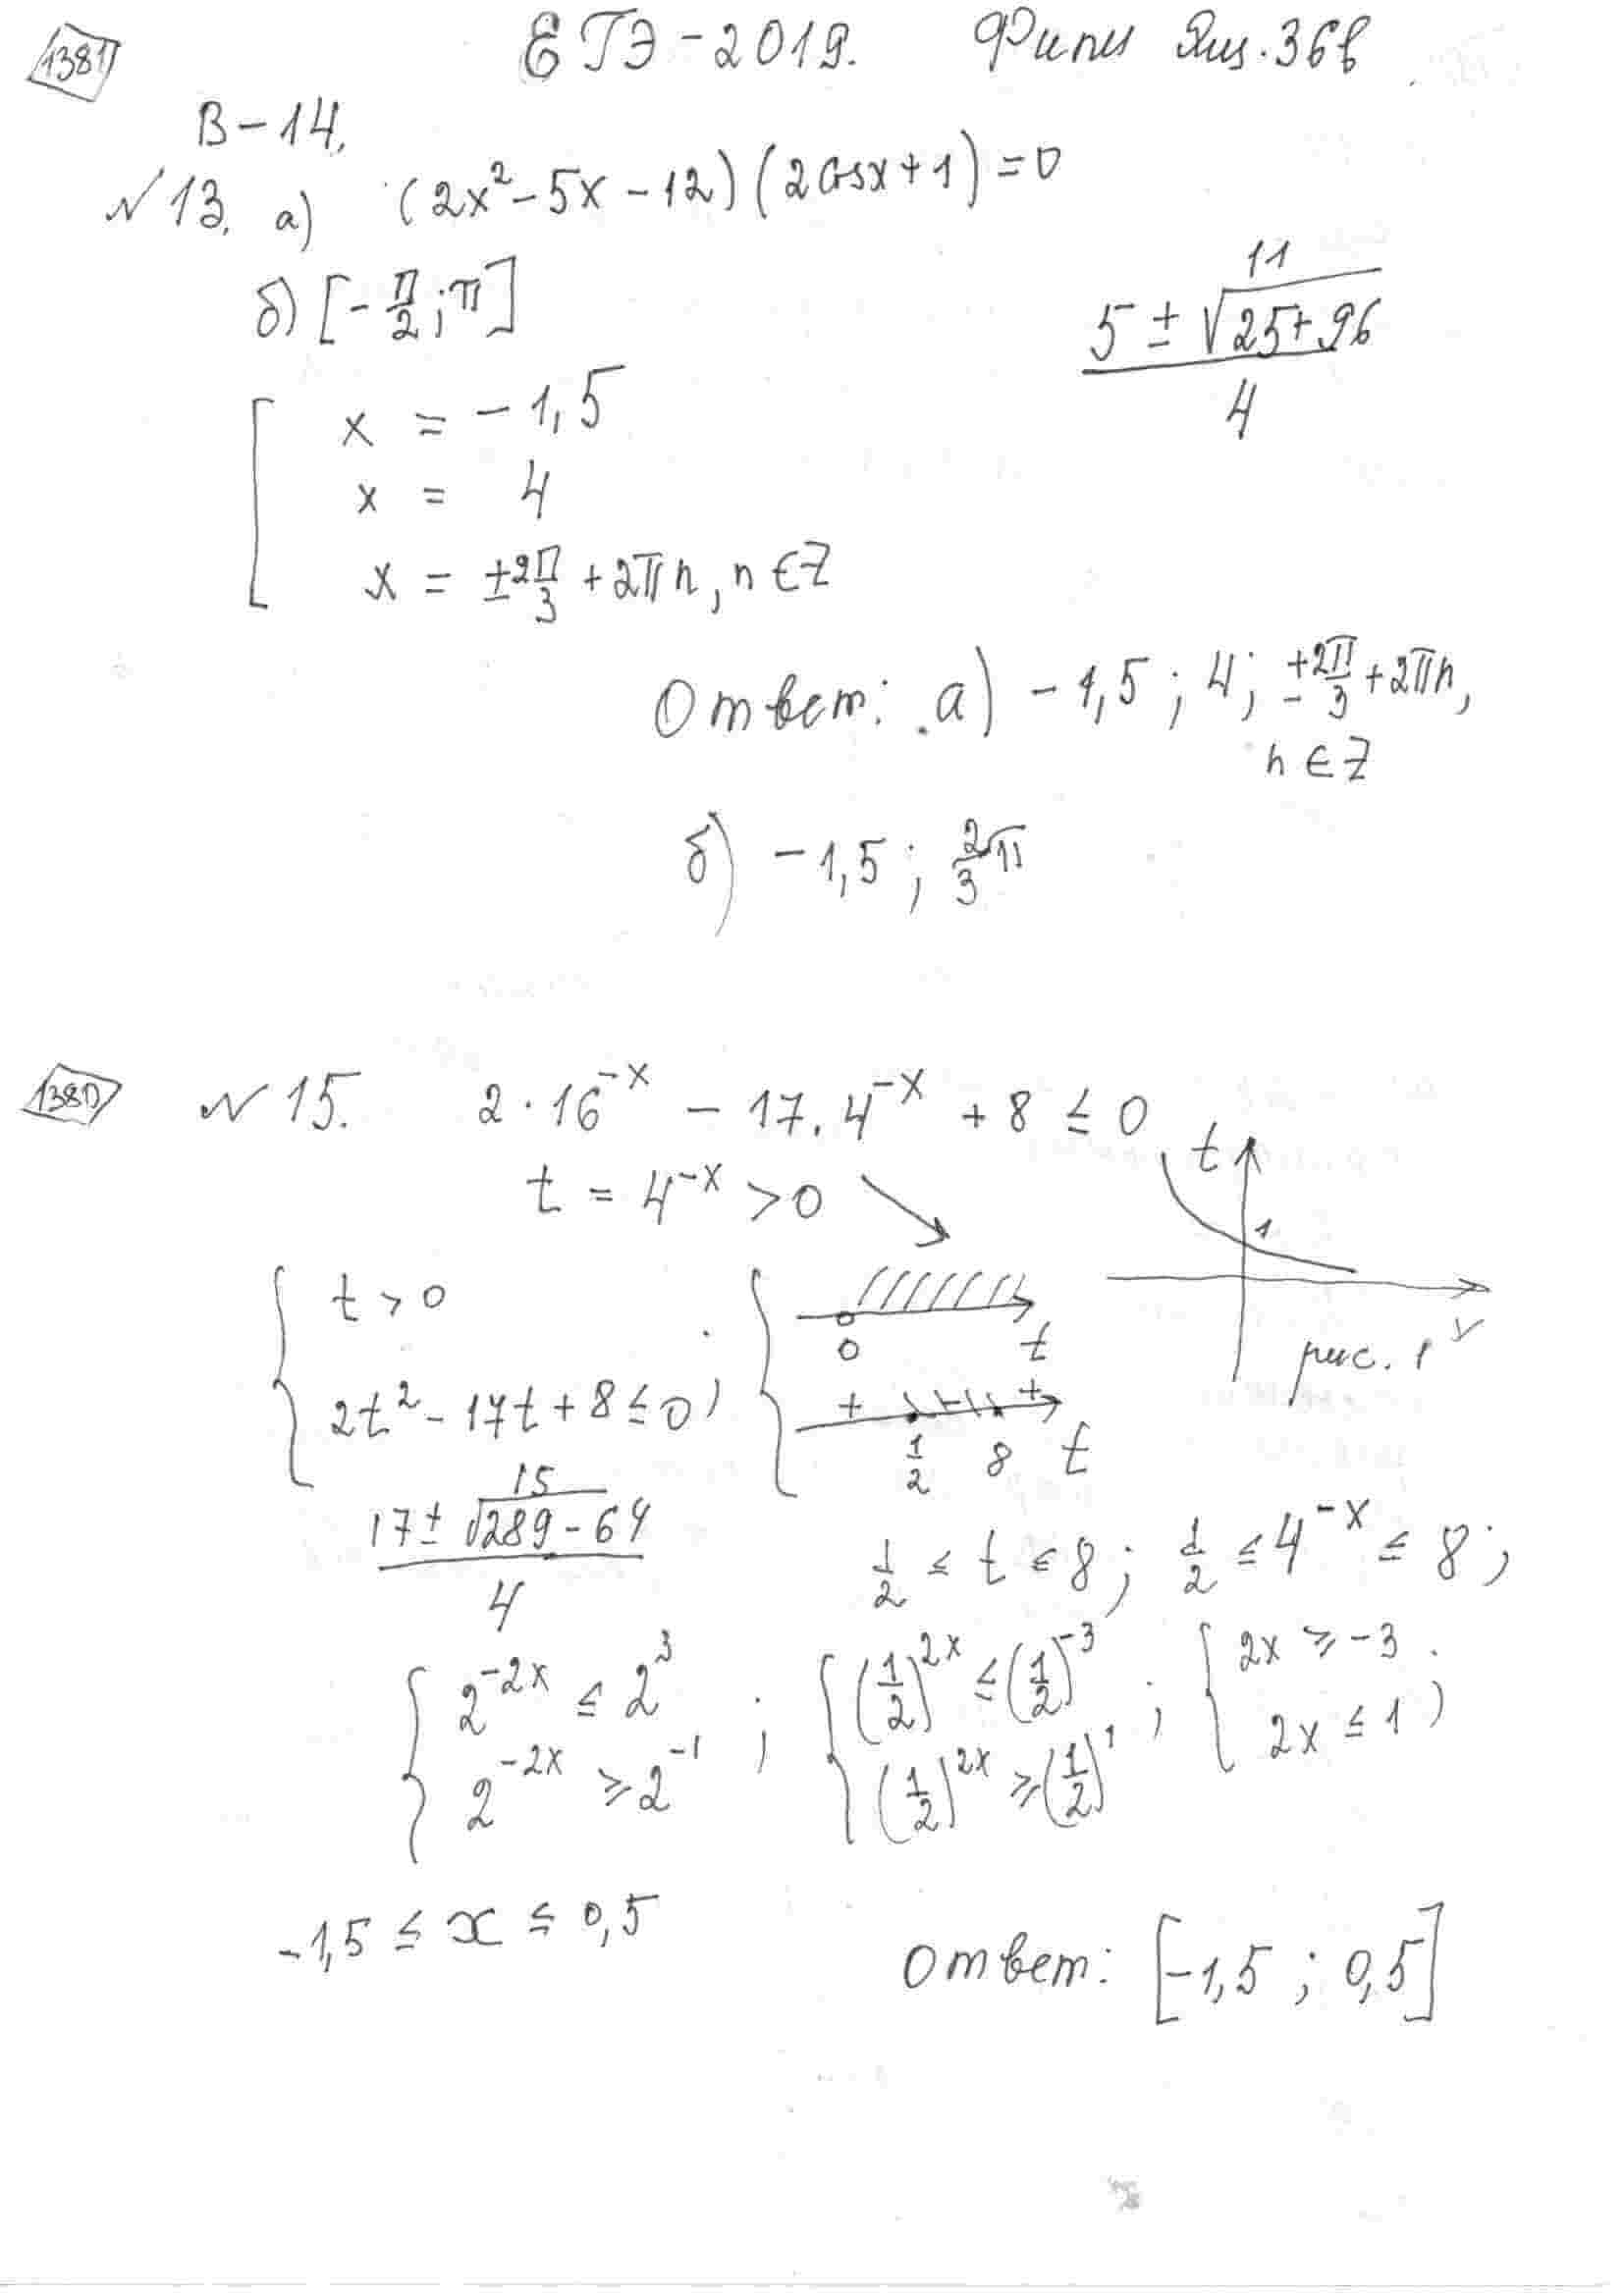 1381
ЕГЭ-2019. Фипи Ящ. 36в
В-14.
№13. а) (2x² - 5x - 12)(2cosx + 1) = 0
б) [-π/2; π]
11
(5 ± √(25 + 96))/4
x = -1,5
x = 4
x = ±2π/3 + 2πn, n ∈ Z
Ответ: а) -1,5; 4; ±2π/3 + 2πn,
n ∈ Z
б) -1,5; 2/3 π
1380
№15. 2·16^(-x) - 17·4^(-x) + 8 ≤ 0
t = 4^(-x) > 0
t
1
рис. 1
t > 0
0 t
2t² - 17t + 8 ≤ 0;
+ - +
1/2 8 t
15
(17 ± √(289 - 64))/4
1/2 ≤ t ≤ 8; 1/2 ≤ 4^(-x) ≤ 8;
2^(-2x) ≤ 2³
2^(-2x) ≥ 2^(-1);
(1/2)^(2x) ≤ (1/2)^(-3)
(1/2)^(2x) ≥ (1/2)^1;
2x ≥ -3
2x ≤ 1;
-1,5 ≤ x ≤ 0,5
Ответ: [-1,5; 0,5]